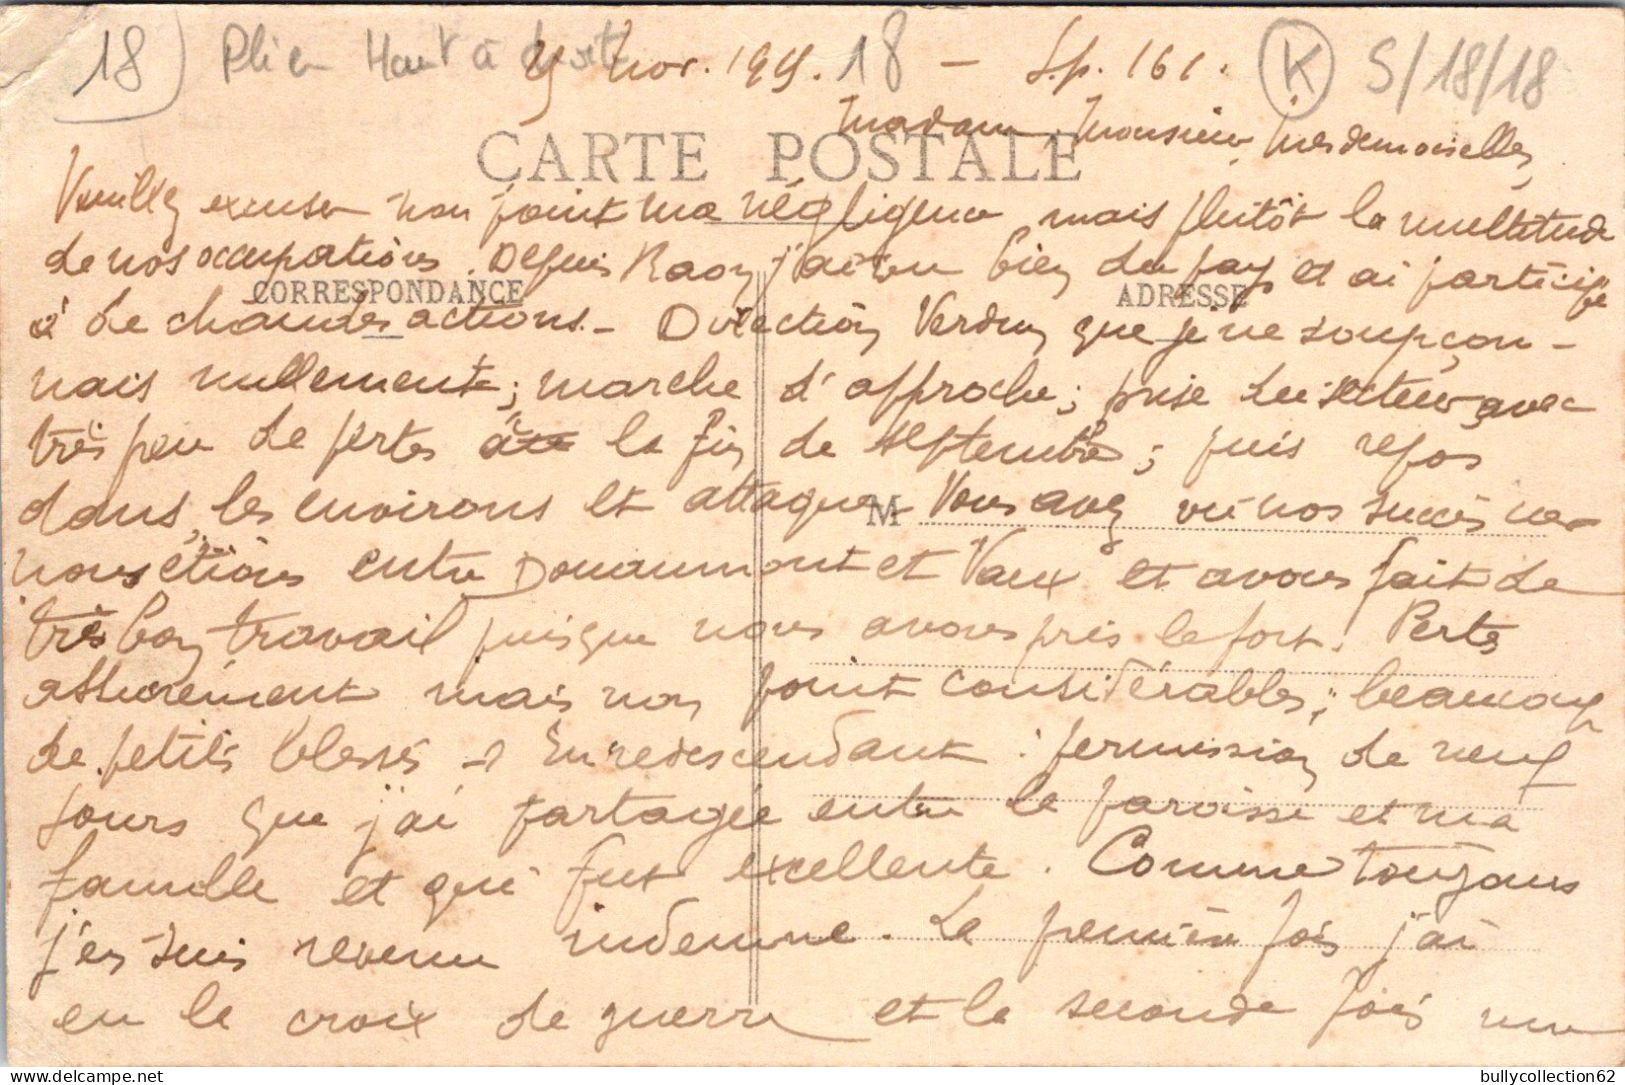 18) Pli en Haut à droite
Nov. 18 - S.p. 161.
K S/18/18
Madame, Monsieur, Mesdemoiselles,
CARTE POSTALE
Veuillez excuser non point ma négligence mais plutôt la multitude
de nos occupations. Depuis Raon j'ai vu bien du pays et ai participé
CORRESPONDANCE ADRESSE
à de chaudes actions. - Direction Verdun que je ne soupçon-
nais nullement; marche d'approche; prise du secteur avec
très peu de pertes à la fin de septembre; puis repos
dans les environs et attaque. Vous avez vu nos succès
M
nous étions entre Douaumont et Vaux et avons fait de
très bon travail puisque nous avons pris le fort. Pertes
assurément mais non point considérables; beaucoup
de petits blessés - En redescendant: permission de neuf
jours que j'ai partagée entre la paroisse et ma
famille et qui fut excellente. Comme toujours
j'en suis revenu indemne. La première fois j'ai
eu la croix de guerre et la seconde fois une
bullycollection62